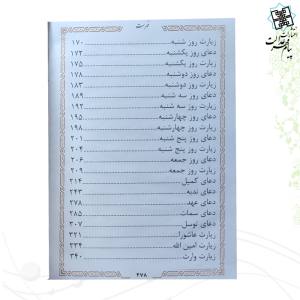 فهرست
زیارت روز شنبه ........ ۱۷۰
دعای روز یکشنبه ........ ۱۷۲
زیارت روز یکشنبه ........ ۱۷۵
دعای روز دوشنبه ........ ۱۷۸
زیارت روز دوشنبه ........ ۱۸۳
دعای روز سه شنبه ........ ۱۸۹
زیارت روز سه شنبه ........ ۱۹۲
دعای روز چهارشنبه ........ ۱۹۵
زیارت روز چهارشنبه ........ ۱۹۸
دعای روز پنج شنبه ........ ۲۰۱
زیارت روز پنج شنبه ........ ۲۰۴
دعای روز جمعه ........ ۲۰۶
زیارت روز جمعه ........ ۲۰۹
دعای کمیل ........ ۲۱۴
دعای ندبه ........ ۲۴۳
دعای عهد ........ ۲۷۸
دعای سمات ........ ۲۸۵
دعای توسل ........ ۳۰۷
زیارت عاشورا ........ ۳۲۱
زیارت امین الله ........ ۳۳۴
زیارت وارث ........ ۳۴۰
۴۷۸